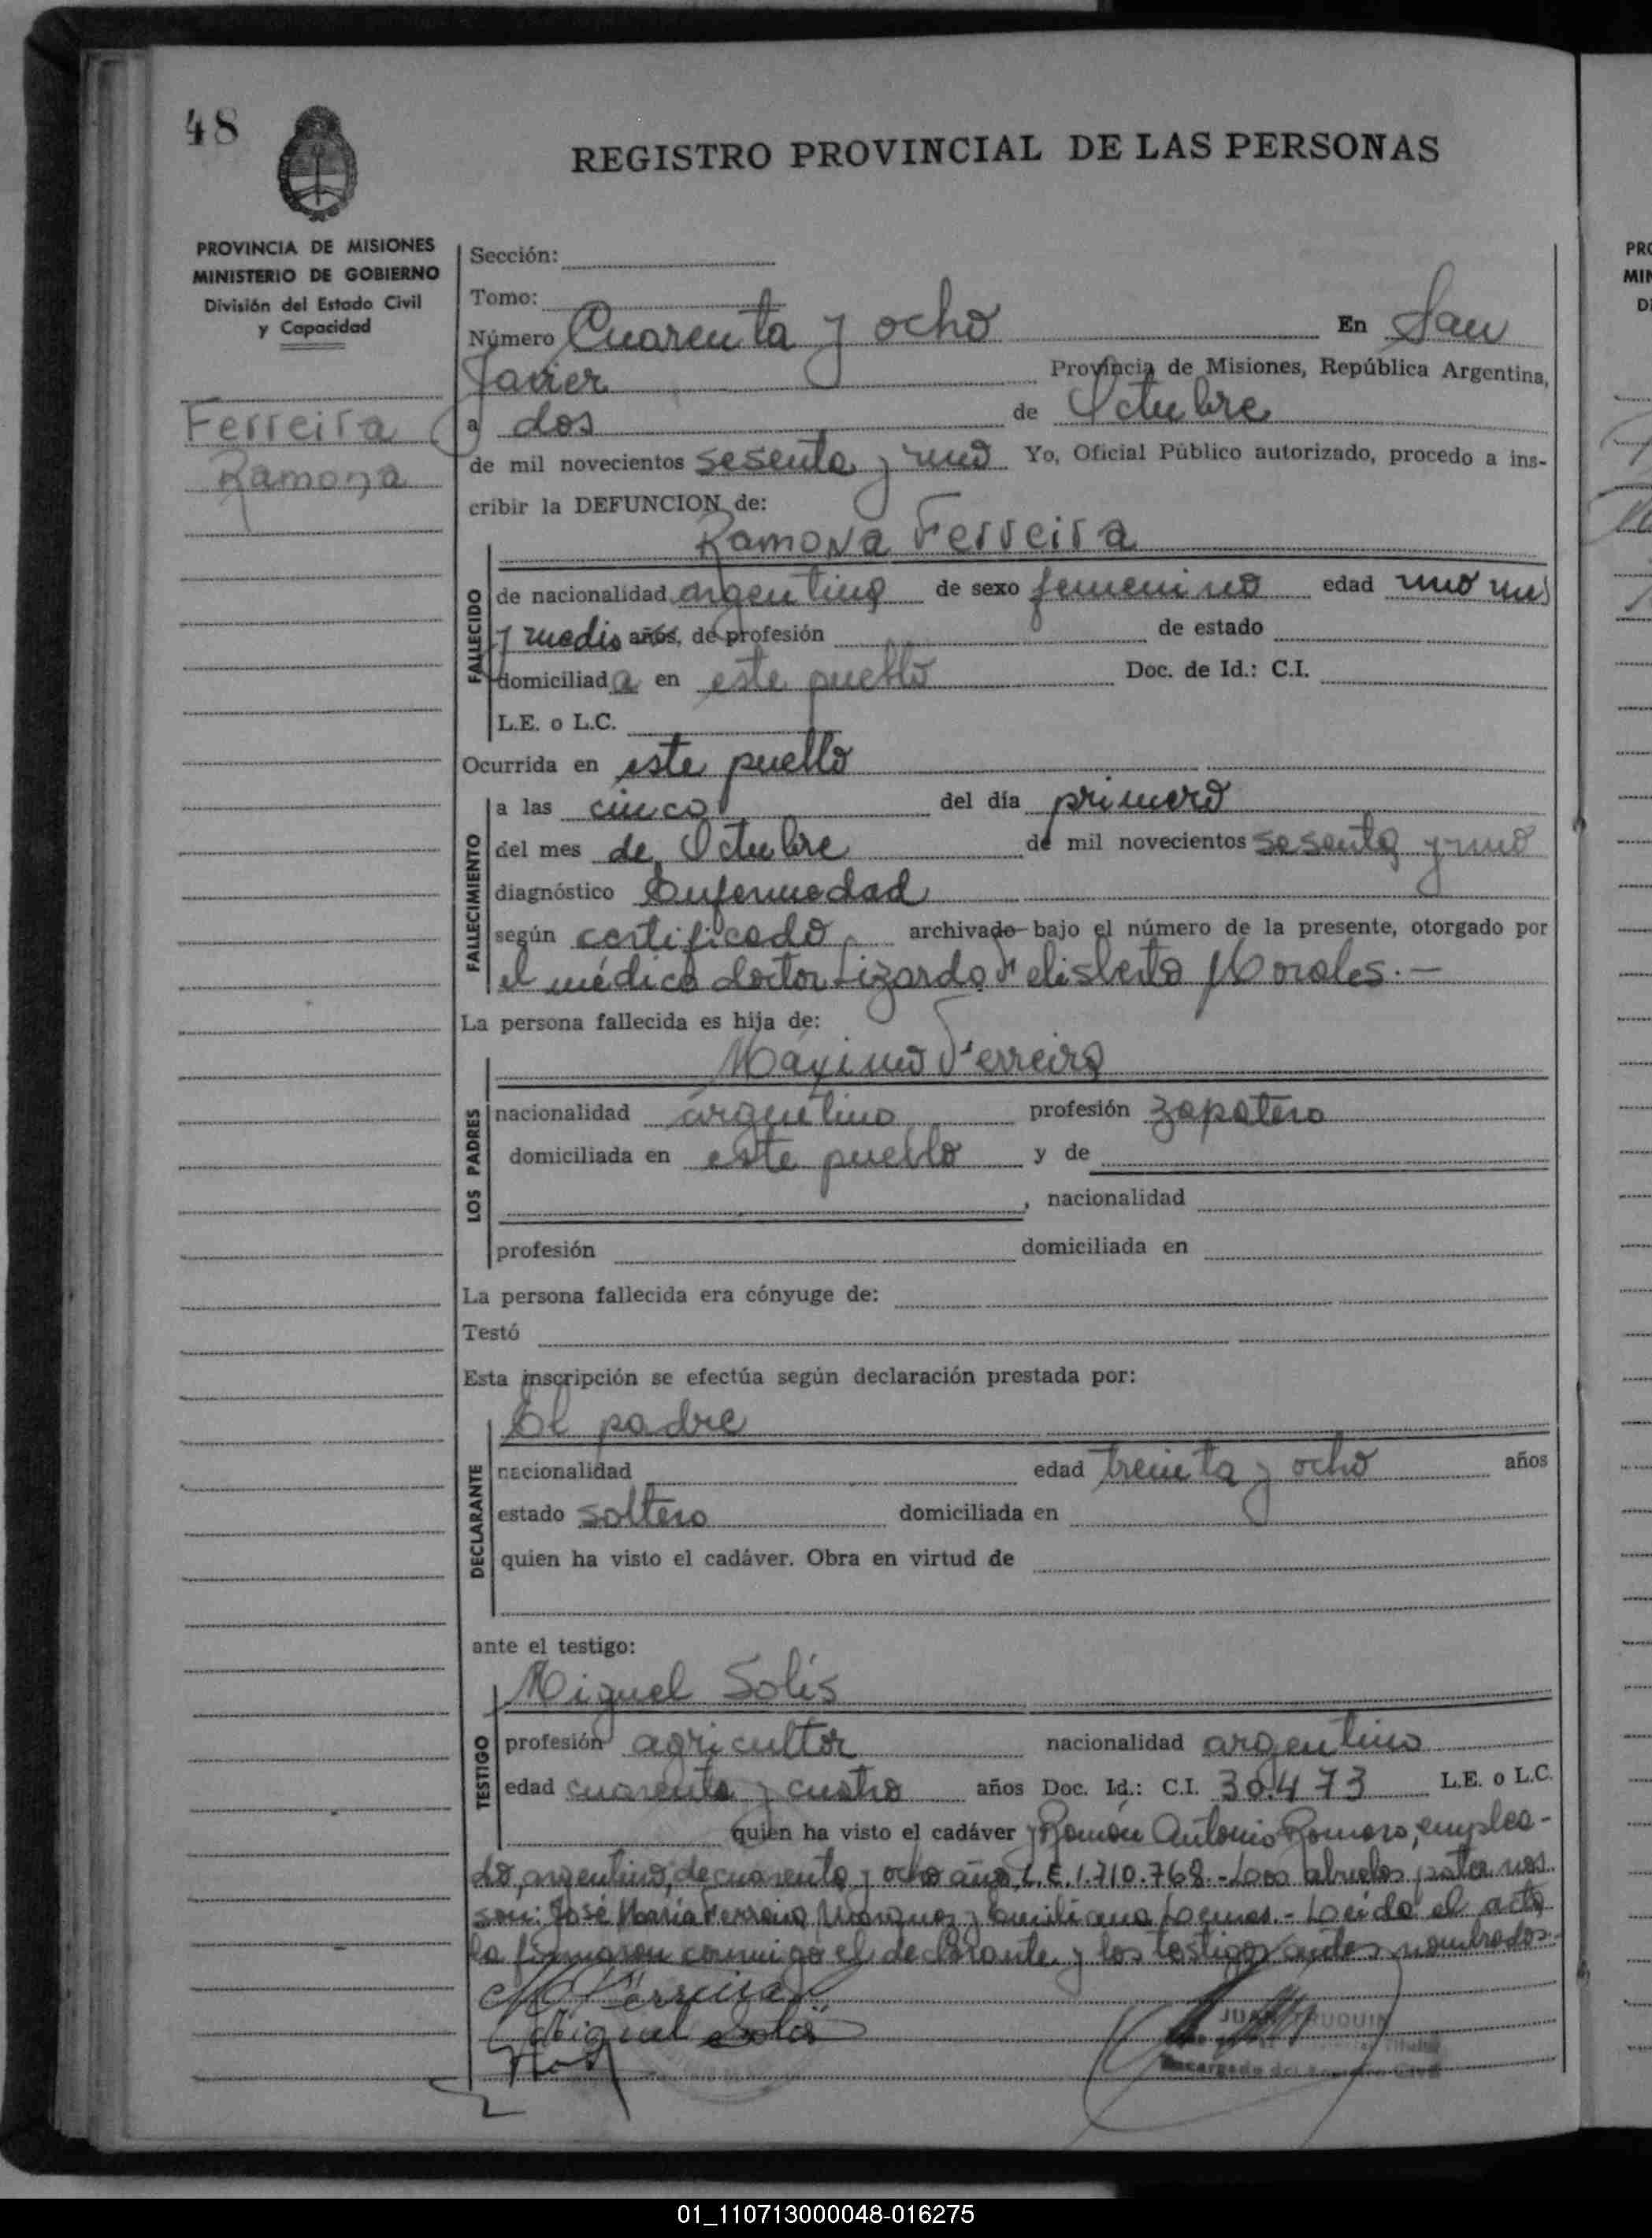 48
REGISTRO PROVINCIAL DE LAS PERSONAS
PROVINCIA DE MISIONES
MINISTERIO DE GOBIERNO
División del Estado Civil
y Capacidad
Ferreira
Ramona
Sección:
Tomo:
Número Cuarenta y ocho En San
Javier Provincia de Misiones, República Argentina,
a dos de Octubre
de mil novecientos sesenta y uno Yo, Oficial Público autorizado, procedo a ins-
cribir la DEFUNCION de:
Ramona Ferreira
FALLECIDO
de nacionalidad argentina de sexo femenino edad uno mes
y medio años, de profesión de estado
domiciliada en este pueblo Doc. de Id.: C.I.
L.E. o L.C.
Ocurrida en este pueblo
FALLECIMIENTO
a las cinco del día primero
del mes de Octubre de mil novecientos sesenta y uno
diagnóstico Enfermedad
según certificado archivado bajo el número de la presente, otorgado por
el médico doctor Lizardo Felisberto Morales.-
La persona fallecida es hija de:
Máximo Ferreira
LOS PADRES
nacionalidad argentino profesión zapatero
domiciliada en este pueblo y de
, nacionalidad
profesión domiciliada en
La persona fallecida era cónyuge de:
Testó
Esta inscripción se efectúa según declaración prestada por:
El padre
DECLARANTE
nacionalidad edad treinta y ocho años
estado soltero domiciliada en
quien ha visto el cadáver. Obra en virtud de
ante el testigo:
Miguel Solís
TESTIGO
profesión agricultor nacionalidad argentino
edad cuarenta y cuatro años Doc. Id.: C.I. 30.473 L.E. o L.C.
quien ha visto el cadáver y Ramón Antonio Romero, emplea-
do, argentino, de cuarenta y ocho años, L.E. 1.710.768.- Los abuelos paternos
son: José María Ferreira Marquez y Emiliana .- Leída el acta
la firmaron conmigo el declarante y los testigos antes nombrados.-
M Ferreira
Miguel Solis
JUAN
Encargado del Registro Civil
01_110713000048-016275